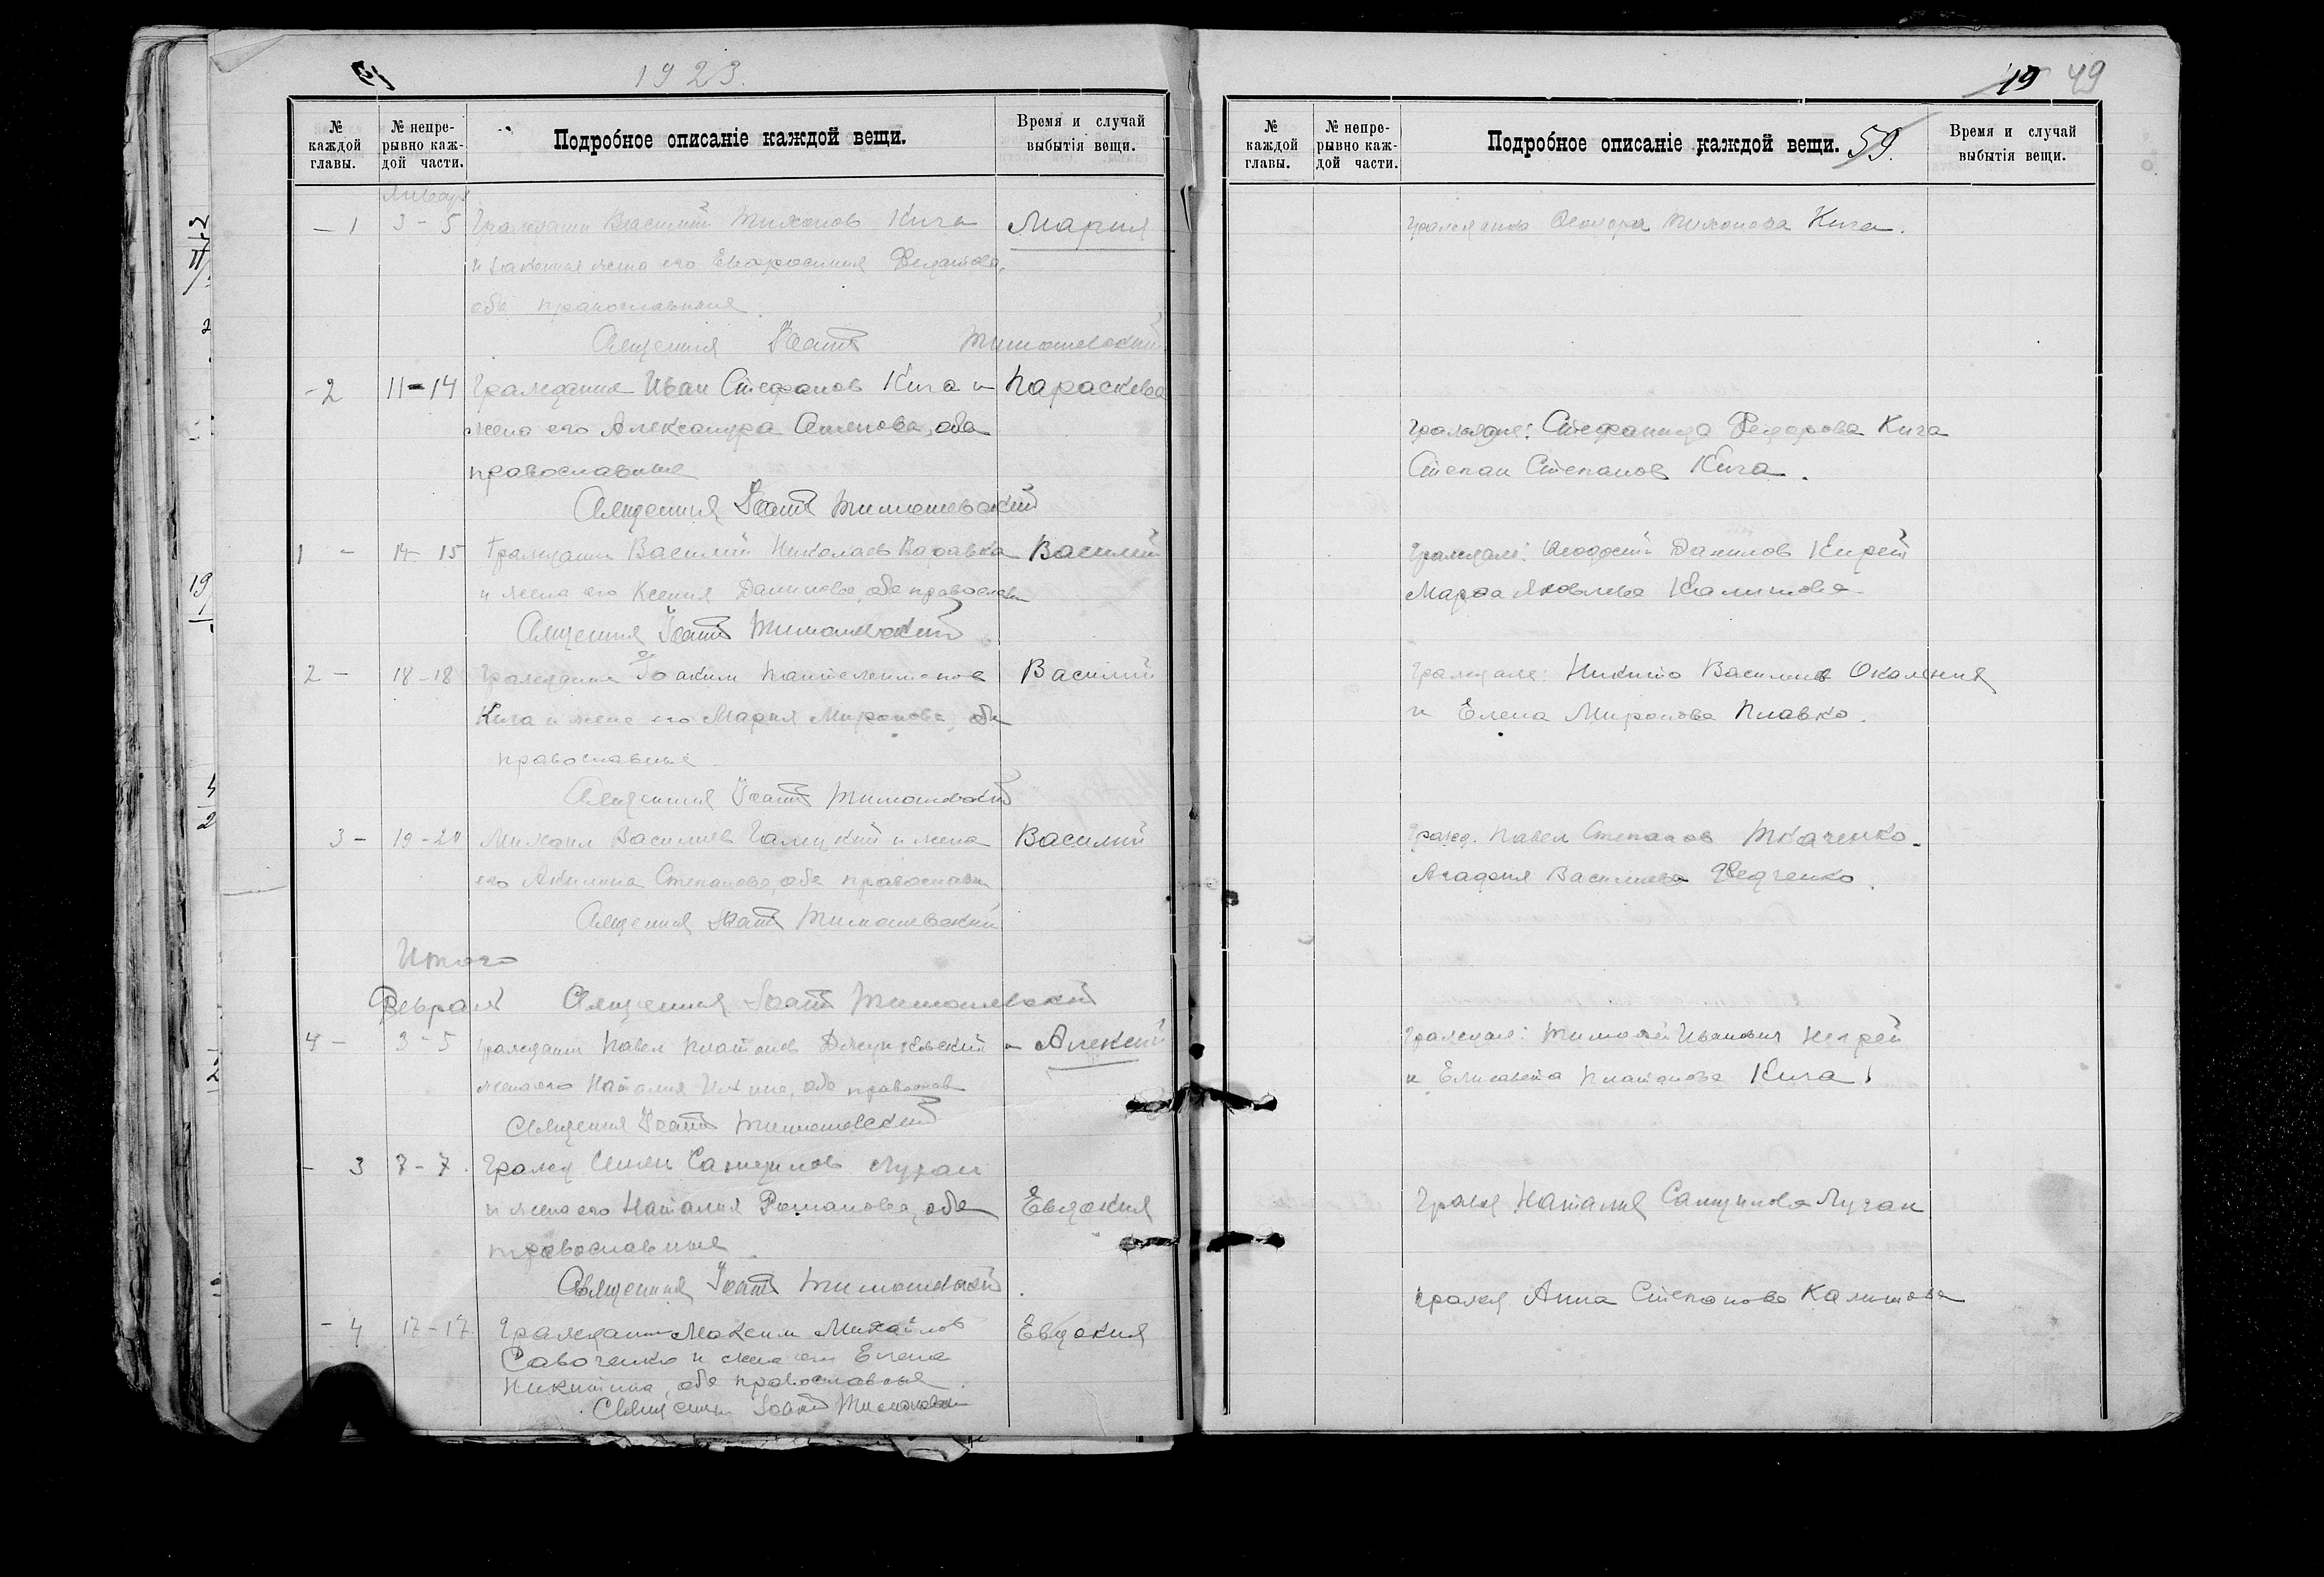 1923.
19 49
№ каждой главы.
№ непрерывно каждой части.
Подробное описаніе каждой вещи.
Время и случай выбытія вещи.
Январь
– 1 3 – 5 Гражданин Василий Тихонов Кига Мария
и законная жена его Евфросиния
оба православные.
Священник Иоанн Тимошевский
– 2 11 – 14 Гражданин Иван Стефанов Кига и Параскева
жена его Александра Семенова, оба
православные
Священник Иоанн Тимошевский
1 – 14 – 15 Гражданин Василий Николаев Варавка Василий
и жена его Ксения Данилова, оба православн
Священник Иоанн Тимошевский
2 – 18 – 18 Гражданин Іоаким Пантелеимонов Василий
Кига и жена его Мария Миронова, оба
православные.
Священник Иоанн Тимошевский
3 – 19 – 20 Михаил Васильев Галицкий и жена Василий
его Акилина Степанова, оба православн
Священник Иоанн Тимошевский
Итого
Февраль Священник Иоанн Тимошевский
4 – 3 – 5 Гражданин Павел Платонов и Алексий
жена его Наталия, оба православ
Священник Иоанн Тимошевский
– 3 7 – 7. Гражд Семен
и жена его Наталия Романова, оба Евдокия
православные.
Священник Иоанн Тимошевский
– 4 17 – 17. Гражданин Максим Михайлов Евдокия
Савченко и жена его Елена
Никитина, оба православные.
Священник Иоанн Тимошевский
№ каждой главы.
№ непрерывно каждой части.
Подробное описаніе каждой вещи. 59.
Время и случай выбытія вещи.
Гражданка Тихонова Кига.
Граждане: Стефанида Федорова Кига
Степан Степанов Кига.
Граждане: Феодосий Данилов Кирей
Марфа Яковлева Калитова
Граждане: Никита Васильев
и Елена Миронова Плавко.
Гражд. Павел Степанов Ткаченко.
Агафия Васильева Федченко.
Граждане: Тимофей Иванович
и Елисавета Платонова Кига
Гражд Наталия
Гражд Анна Степанова Калитова